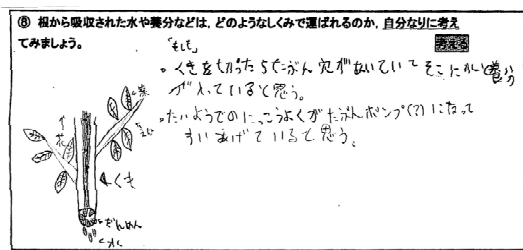 ⑧ 根から吸収された水や養分などは、どのようなしくみで運ばれるのか、自分なりに考え
てみましょう。
「もしも」
・くきを切ったらたぶん穴があいていてそこに
が入っていると思う。
・たいようでのにっこうよくがたぶんポンプ(?)になって
すいあげていると思う。
葉
花
えだ
くき
だんめん
水